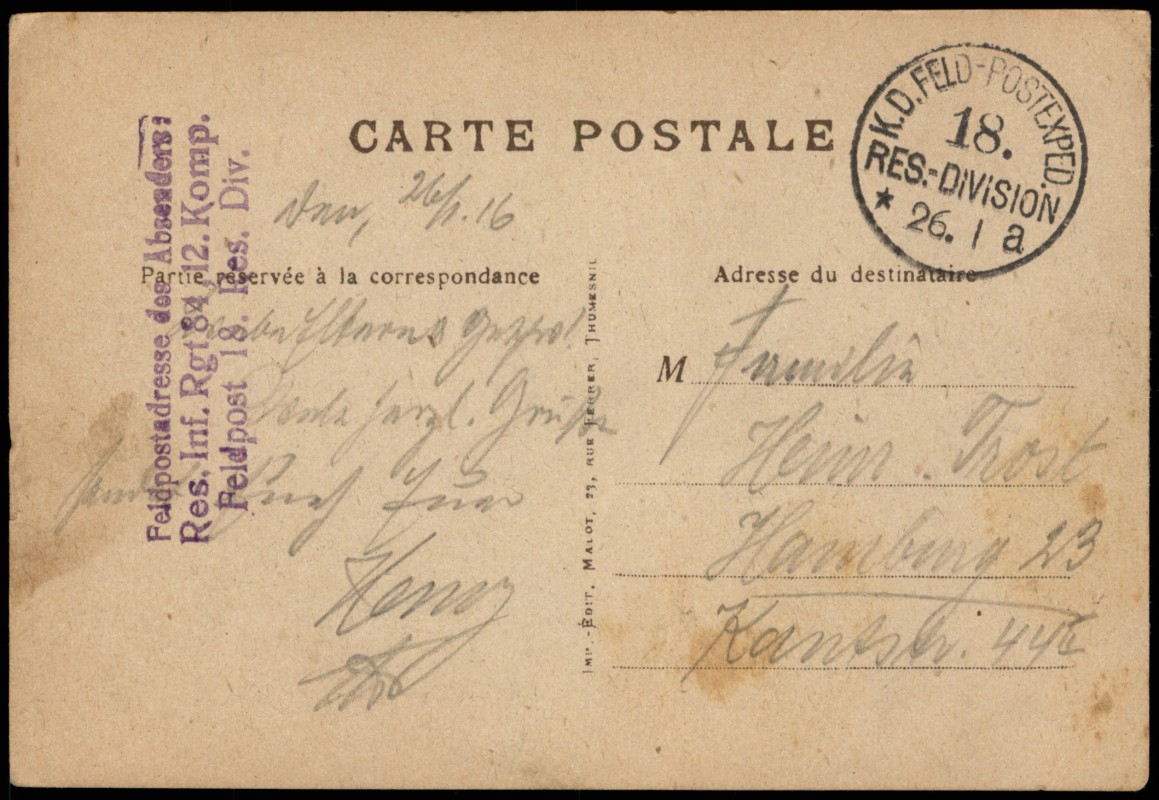 CARTE POSTALE
K.D. FELD-POSTEXPED.
18.
RES.-DIVISION
* 26. 1 a
Feldpostadresse des Absenders:
Res. Inf. Rgt 84, 12. Komp.
Feldpost 18. Res. Div.
Den, 26/1.16
Partie réservée à la correspondance
Liebe Eltern
herzl. Grüße
sendet Euch Euer
Henry
IMP.-ÉDIT. MALOT, 23, RUE FERRER, THUMESNIL
Adresse du destinataire
M Familie
Heinr. Trost
Hamburg 23
Kantstr. 44